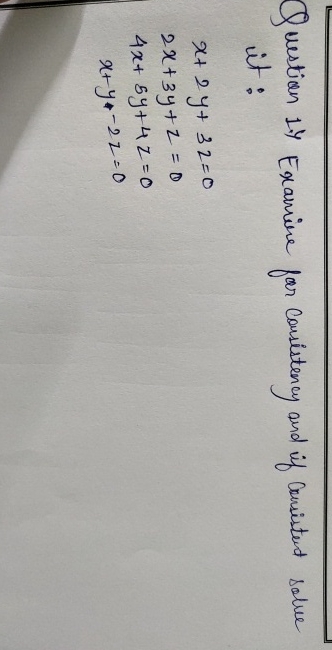 Question 14 Examine for Consistency and if Consistent solve
it :
x + 2y + 3z = 0
2x + 3y + z = 0
4x + 5y + 4z = 0
x + y - 2z = 0